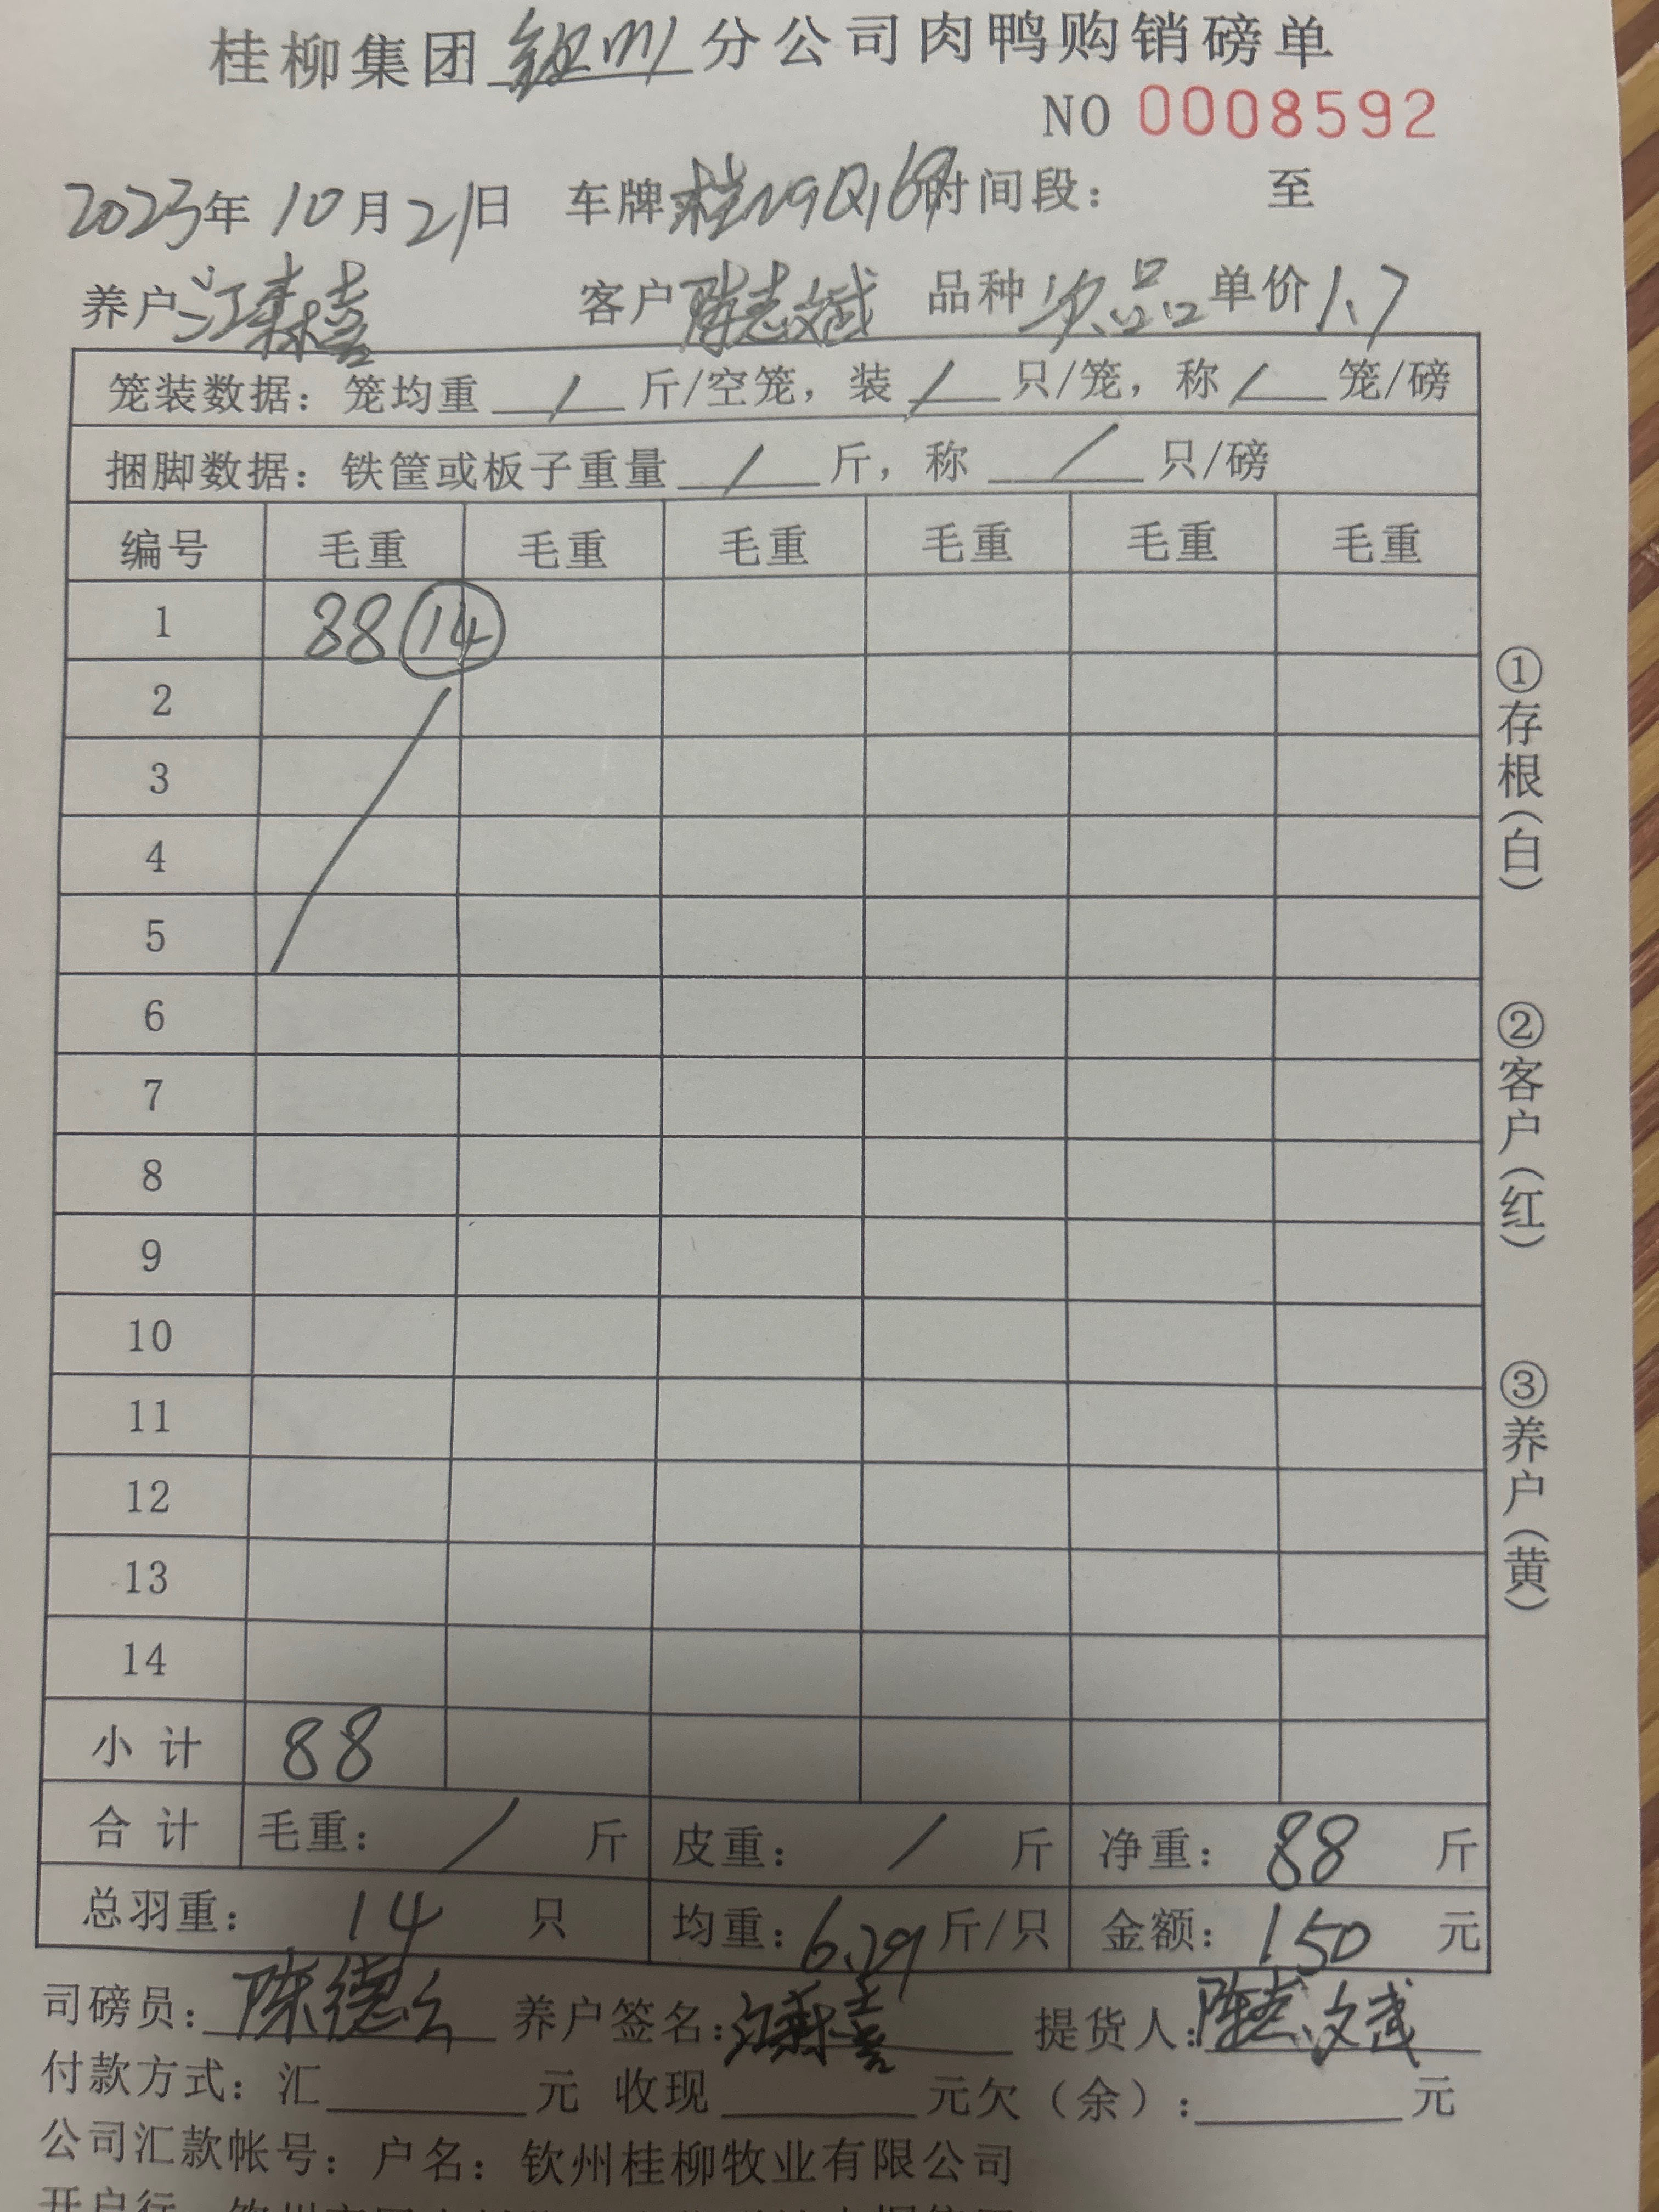 桂柳集团钦州分公司肉鸭购销磅单
NO 0008592
2023年10月21日 车牌 时间段： 至
养户 客户陈志斌 品种次品 单价1.7
笼装数据：笼均重 / 斤/空笼，装 / 只/笼，称 / 笼/磅
捆脚数据：铁筐或板子重量 / 斤，称 / 只/磅
编号 毛重 毛重 毛重 毛重 毛重 毛重
1 88 14
2
3
4
5
6
7
8
9
10
11
12
13
14
小计 88
合计 毛重： / 斤 皮重： / 斤 净重：88 斤
总羽重：14 只 均重：6.29斤/只 金额：150 元
司磅员：陈德云 养户签名： 提货人：陈志斌
付款方式：汇 元 收现 元欠（余）： 元
公司汇款帐号：户名：钦州桂柳牧业有限公司
开户行
①存根（白）
②客户（红）
③养户（黄）